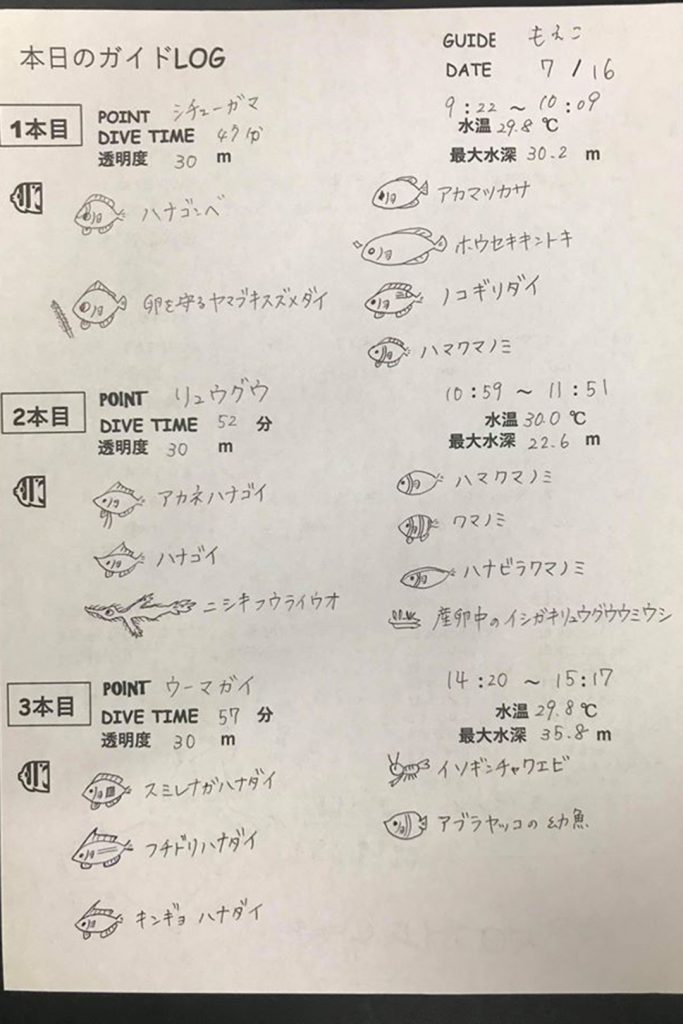 本日のガイドLOG
GUIDE もえこ
DATE 7 / 16
1本目
POINT シチューガマ
DIVE TIME 47分
透明度 30 m
9:22 ~ 10:09
水温 29.8 ℃
最大水深 30.2 m
ハナゴンベ
卵を守るヤマブキスズメダイ
アカマツカサ
ホウセキキントキ
ノコギリダイ
ハマクマノミ
2本目
POINT リュウグウ
DIVE TIME 52 分
透明度 30 m
10:59 ~ 11:51
水温 30.0 ℃
最大水深 22.6 m
アカネハナゴイ
ハナゴイ
ニシキフウライウオ
ハマクマノミ
クマノミ
ハナビラクマノミ
産卵中のイシガキリュウグウウミウシ
3本目
POINT ウーマガイ
DIVE TIME 57 分
透明度 30 m
14:20 ~ 15:17
水温 29.8 ℃
最大水深 35.8 m
スミレナガハナダイ
フチドリハナダイ
キンギョハナダイ
イソギンチャクエビ
アブラヤッコの幼魚